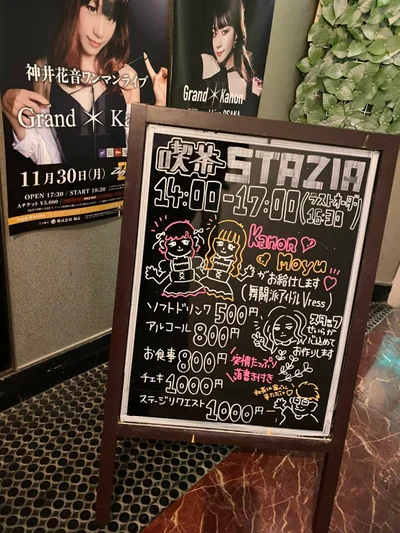 神井花音ワンマンライブ
Grand Kanon
11月30日(月)
OPEN 17:30 / START 18:30
Grand Kanon
喫茶 STAZIA
14:00-17:00(ラストオーダー
16:30
Kanon
Moyu
がお給仕します
(舞闘派アイドルVress)
ソフトドリンク 500円
アルコール 800円
お食事 800円
愛情たっぷり
落書き付き
チェキ 1000円
ステージリクエスト 1000円
せいらが
心込めて
お作りします